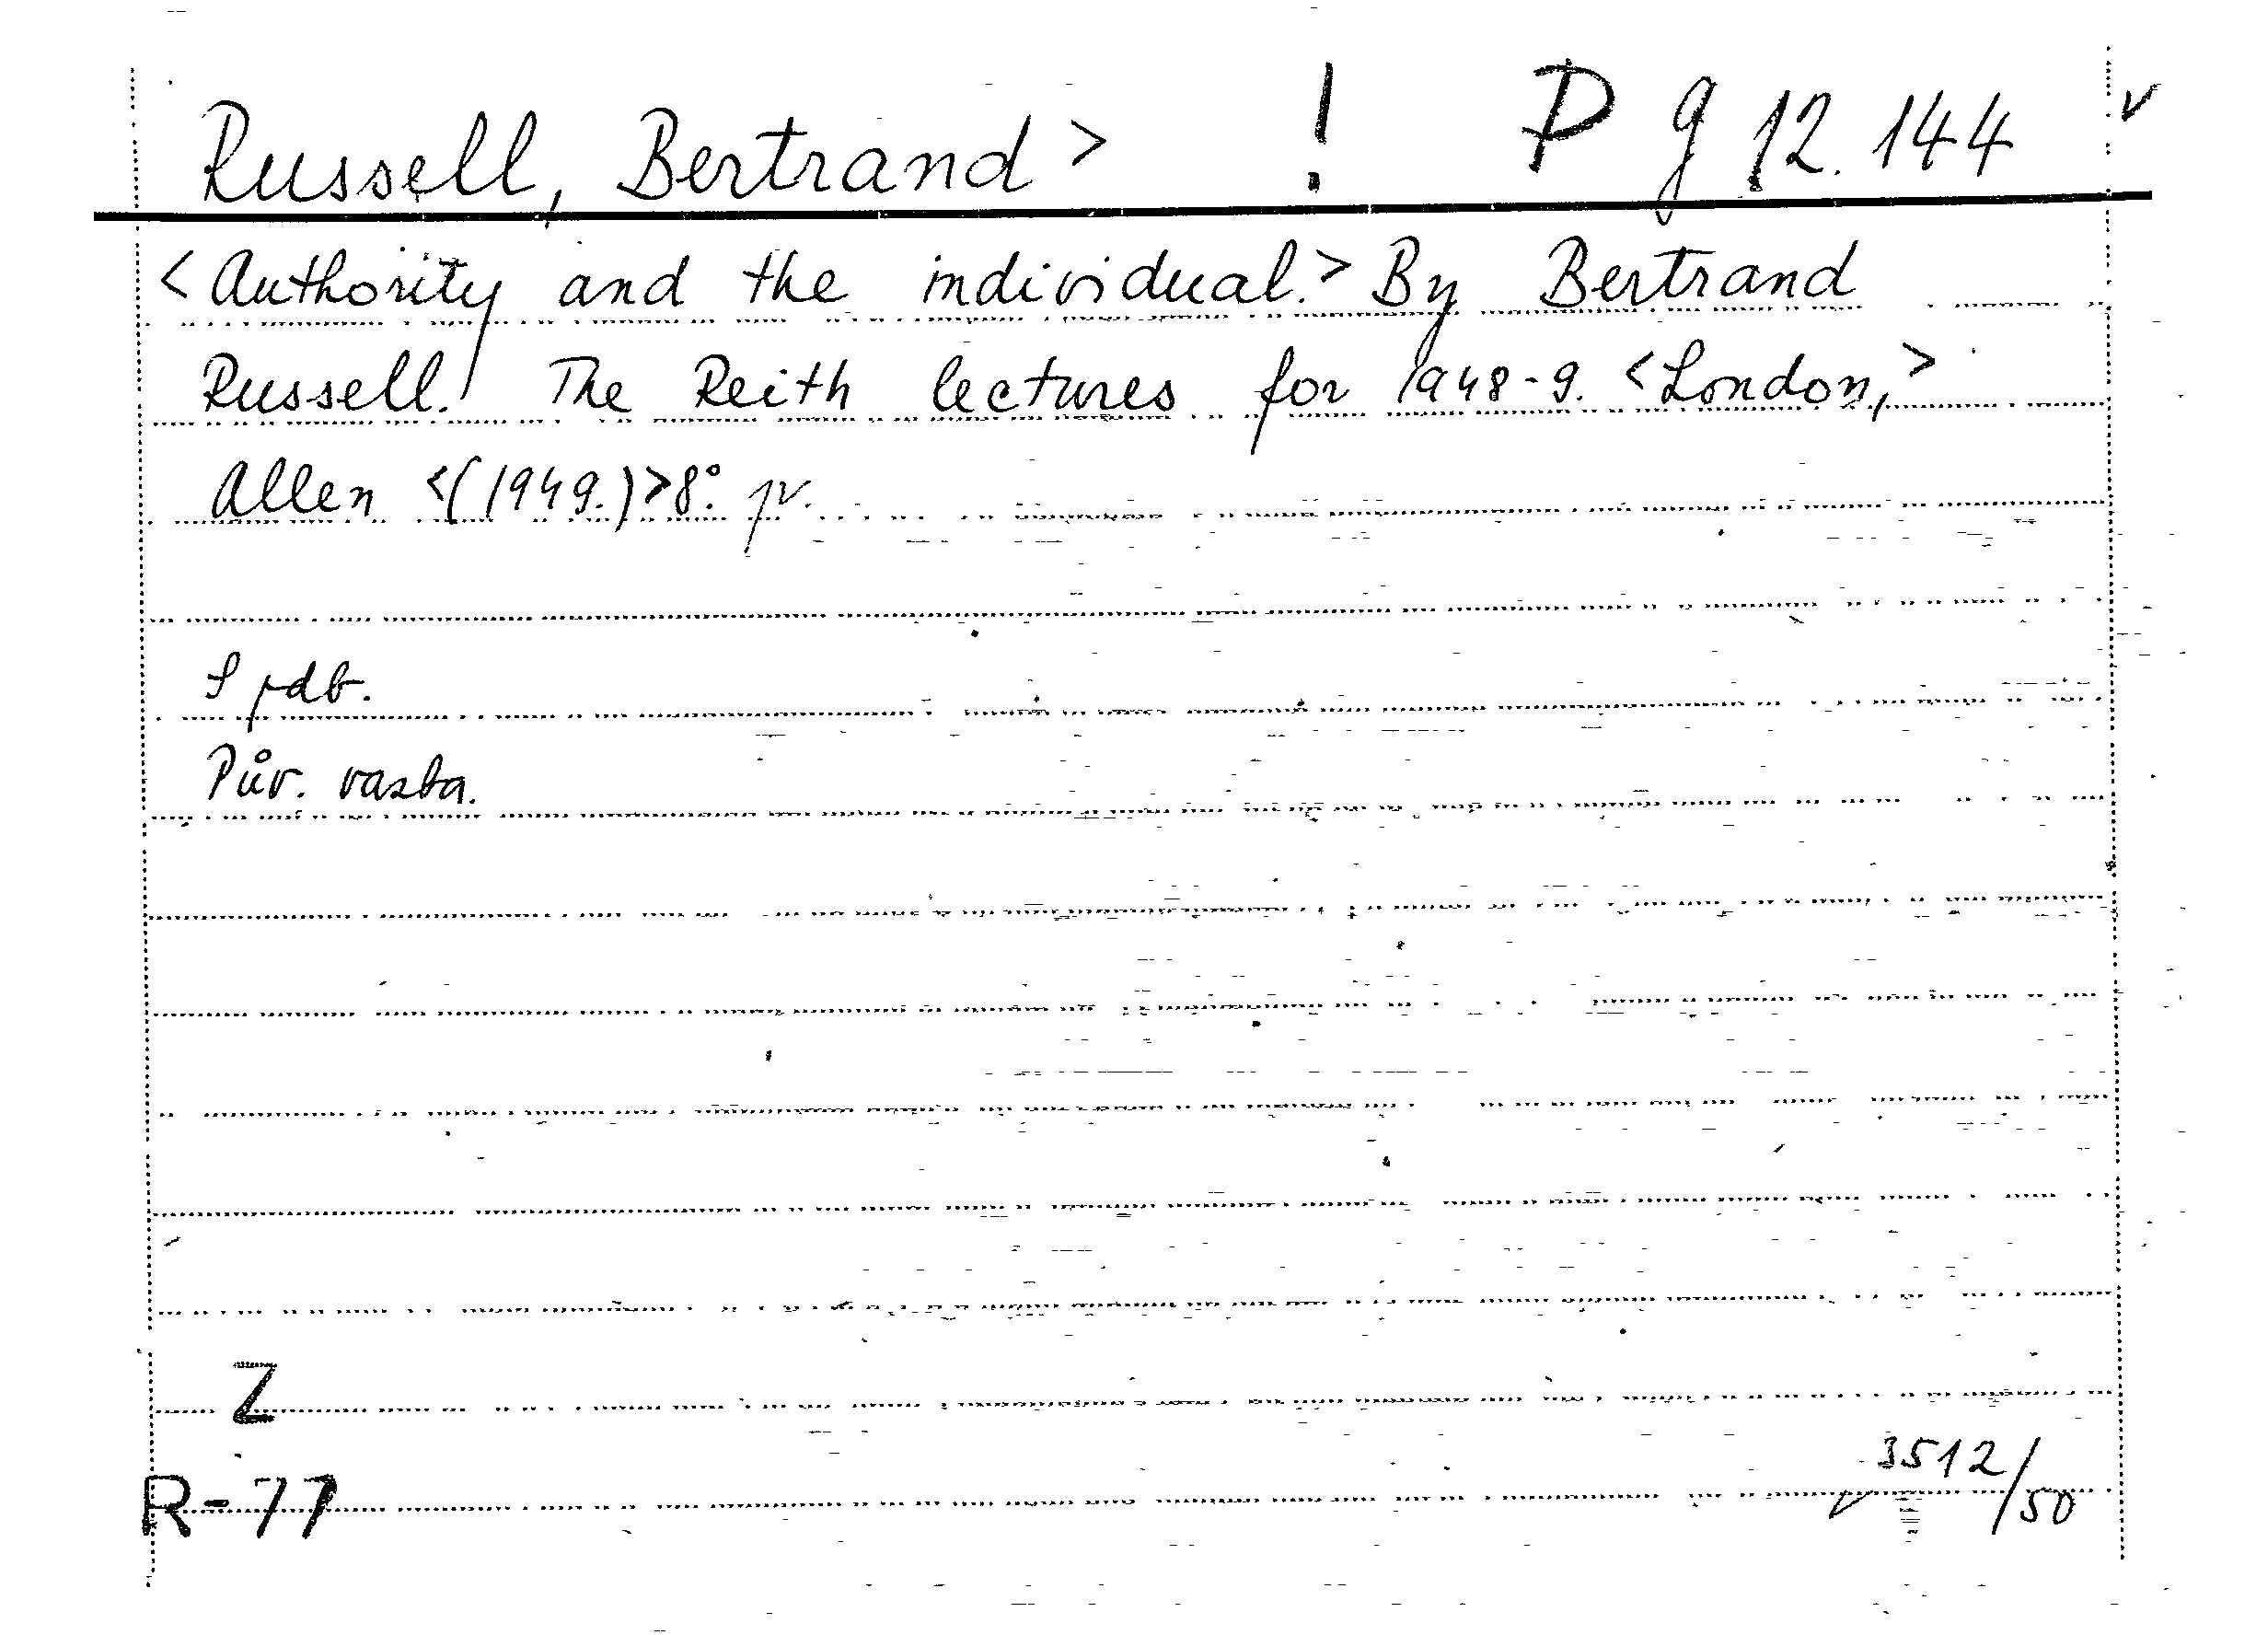 Russell, Bertrand > ! P g 12.144 v
<Authority and the individual.> By Bertrand
Russell. The Reith lectures for 1948-9. <London,>
Allen <(1949.)> 8°.
S pdb.
Pův. vazba.
Z
R-77
3512/50